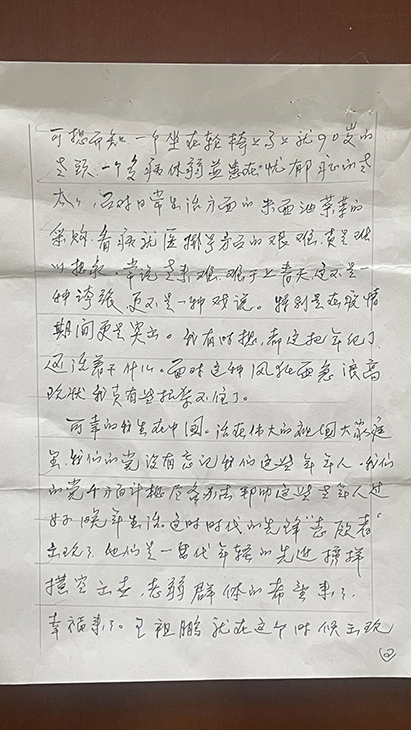 可想而知，一个坐在轮椅上马上就90岁的
老头，一个多病体弱并患有忧郁症的老
太太，面对日常生活方面的米面油菜等的
采购，看病就医挂号方面的艰难，真是难
以想象，常说是来难，难于上青天这不是一
种夸张，更不是一种戏说。特别是在疫情
期间更是突出。我有时想，都这把年纪了，
还活着干什么。面对这种风狂雨急浪高
现状我真有些招架不住了。
可幸的是生在中国。活在伟大的祖国大家庭
里，我们的党没有忘记我们这些年年人。我们
的党千方百计想尽各办法帮助这些老年人过
好晚年生活。这时时代的先锋"志愿者"
出现了，他们是一群代年轻的先进榜样
横空出世，老弱群体的希望来了，
幸福来了。王祖鹏就在这个时候出现
②